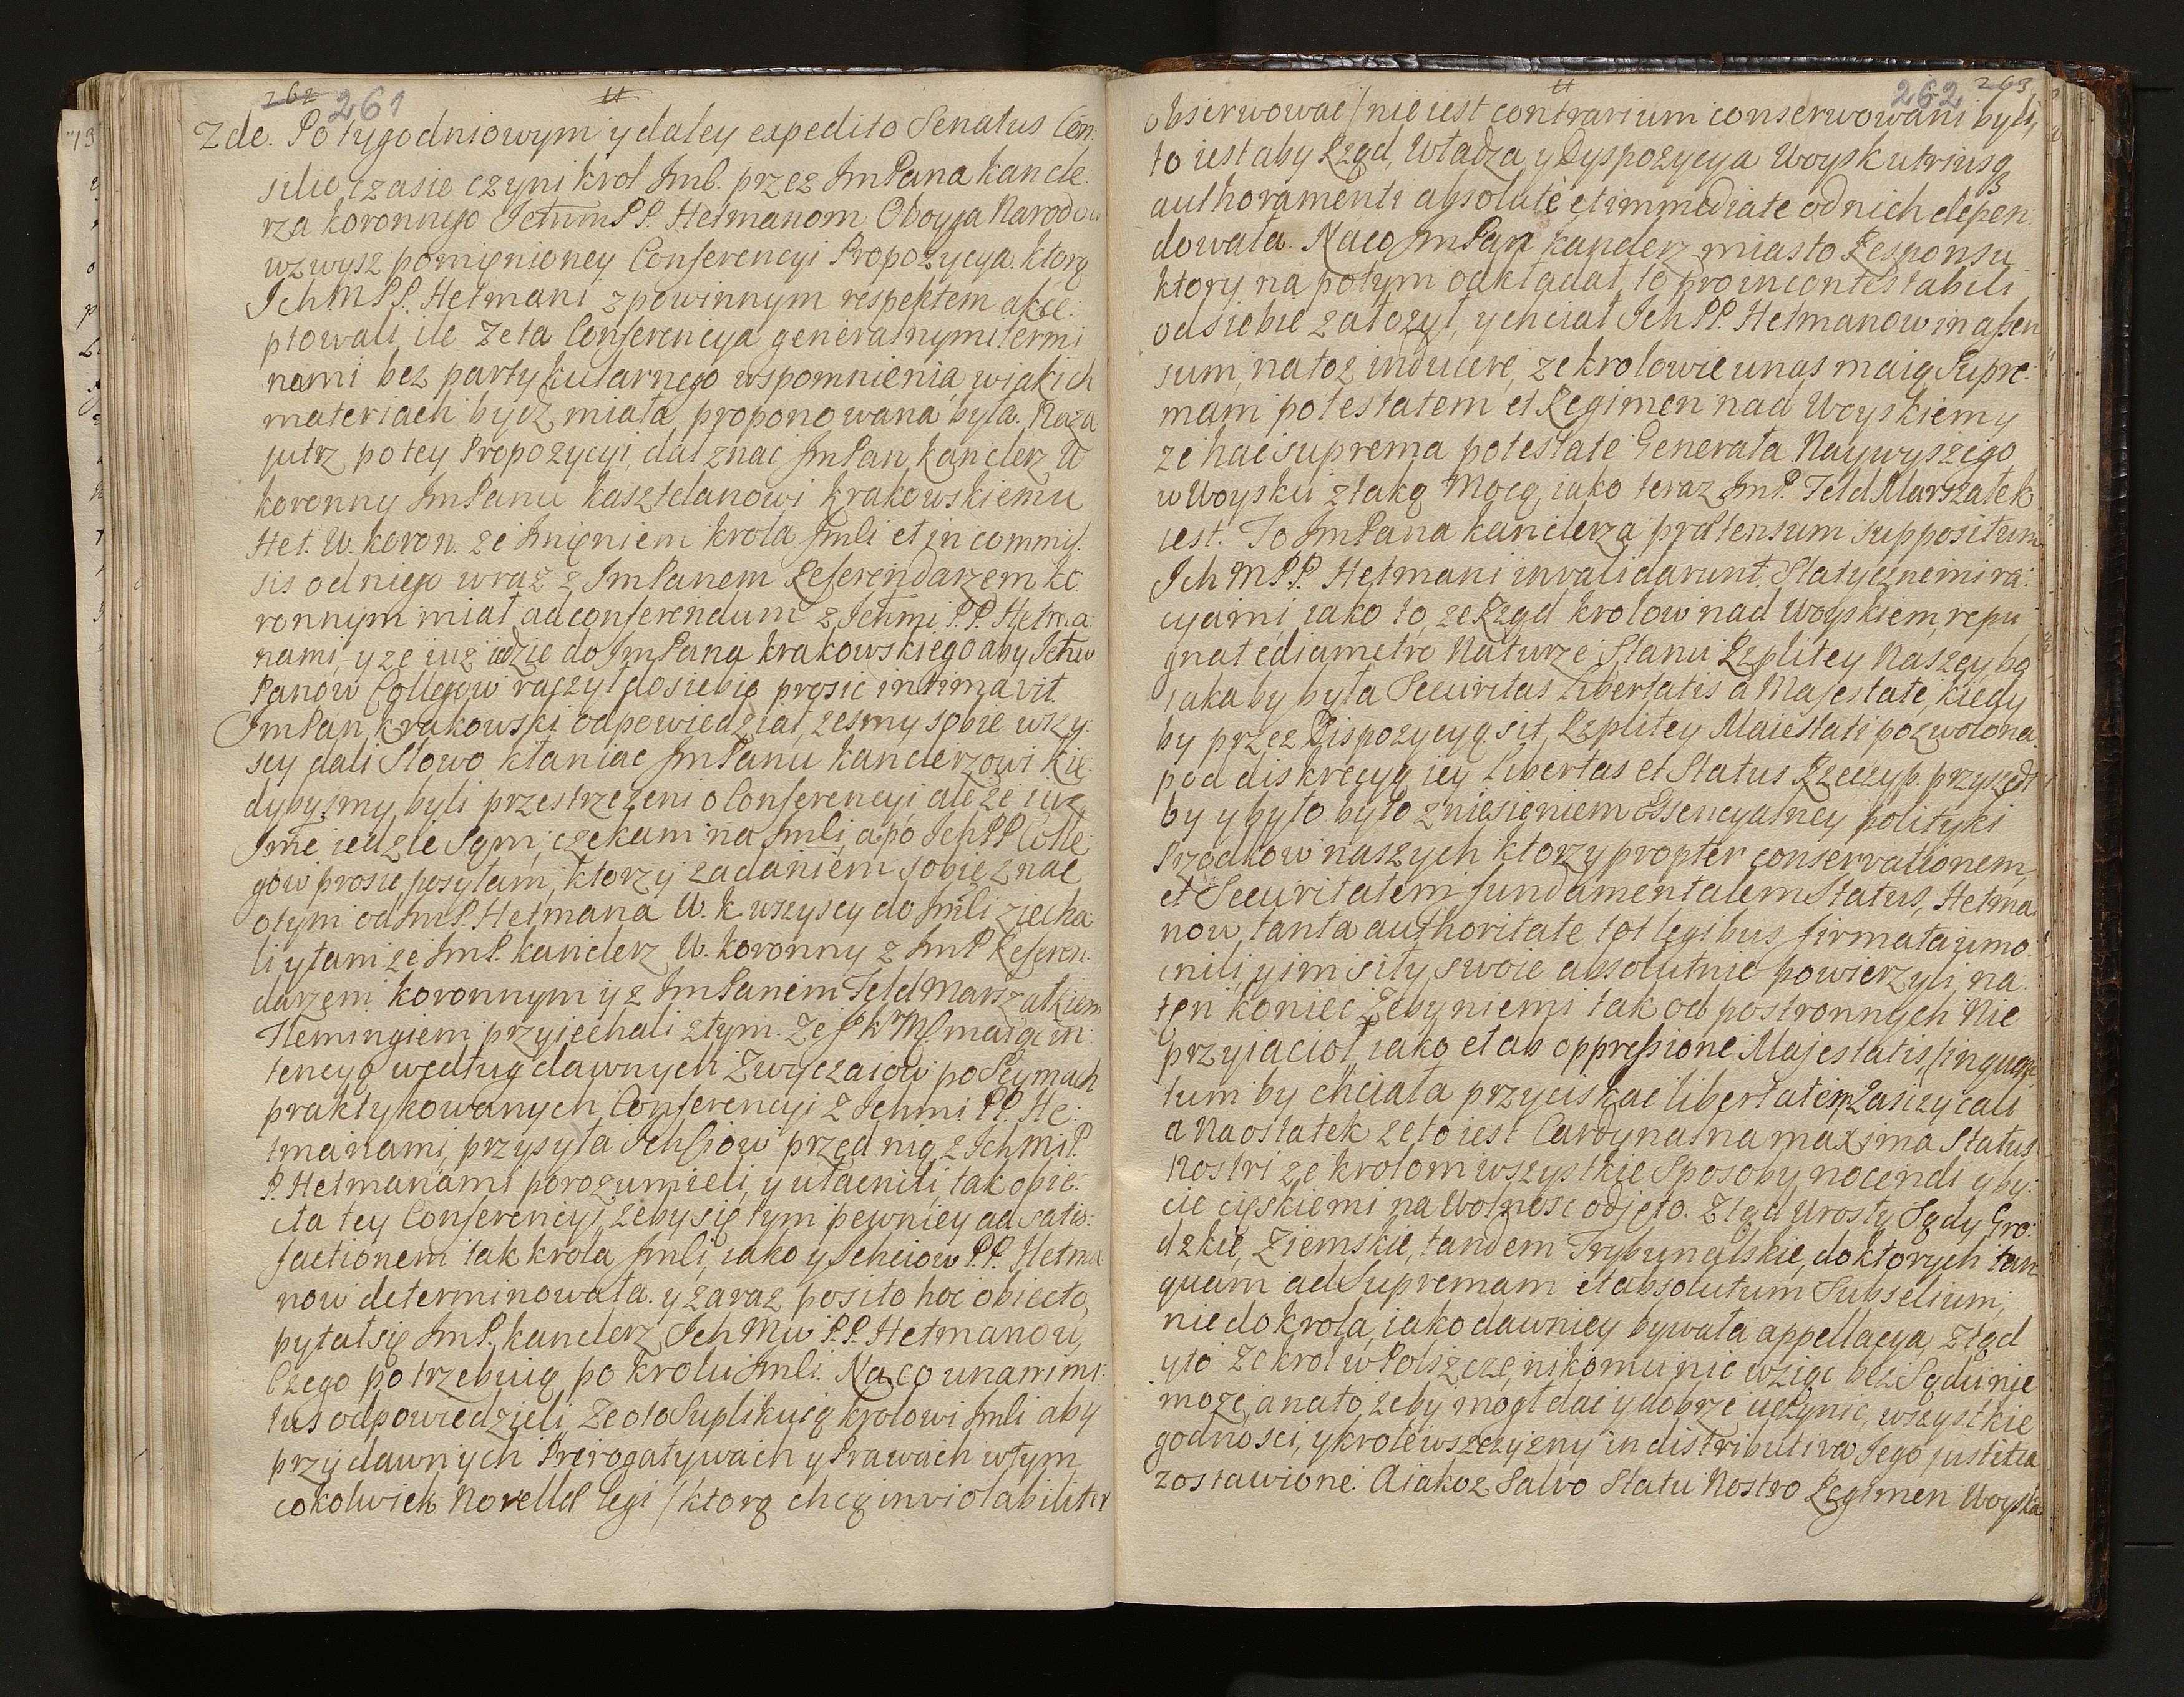 262 261
zde. Po tygodniowym y daley expedito Senatus Con:
silio, czasie czyni krol Jmć. przez JmPana kancle:
rza koronnego Ichmm PP. Hetmanom Oboyga Narodow
wzwysz pomięnioney Conferencyi Propozycya. ktorą
IchM PP. Hetmani z powinnym respektem akce:
ptowali, ile Ze ta Conferencya generalnymi termi
nami bez partykularnego wspomnienia, w iakich
materiach bydz miała, proponowana była. Naza
jutrz po tey Propozycyi, dał znac JmPan kanclerz W
koronny JmPanu kasztelanowi krakowskiemu
Het. W. koron. ze Imięniem krola Jmći et in commis:
sis od niego wraz z JmPanem Referendarzem ko:
ronnym miał ad conferendum z Ichmi P.P. Hetma:
nami, y ze iuz iedzie do JmPana krakowskiego aby Ichw
Panow Collegow raczył do siebie prosic intimavit.
JmPan krakowski odpowiedział, zesmy sobie wszy:
scy dali Słowo kłaniac JmPanu kanclerzowi kie
dybysmy byli przestrzezeni o Conferencyi, ale ze iuz
Jmć iedzie Sam, czekam na Jmći, a po Ich PP Colle
gow prosic posyłam, ktorzy za daniem sobie znac
o tym od JmP. Hetmana W. k. wszyscy do Jmći ziecha:
li y tam ze JmP. kanclerz W. koronny z JmP Referen:
darzem koronnym y z JmPanem Feld Marszałkiem
Flemingiem przyiechali z tym. Ze J k Mć. maiąc in:
tencyą według dawnych Zwyczaiow po Seymach
praktykowanych Conferencyi z Ichmi PP. He:
tmanami, przysyła Ichćiow przed nią z Ich Mi P.
P. Hetmanami porozumieli, y ułacnili, tak obie:
cta tey Conferencyi, zeby się tym pewniey ad satis:
factionem tak krola Jmći, iako y Ichciow P.P. Hetma
now determinowała. y zaraz posito hoc obiecto,
pytał się JmP. kanclerz Ich Mw P.P. Hetmanow,
Czego potrzebuią po krolu Jmći. Na co unanimi:
ter odpowiedzieli, Ze o to Suplikuią krolowi Jmći aby
przy dawnych Prerogatywach y Prawach w tym
cokolwiek Novellæ legi / ktorą chcą inviolabiliter
262 263
obserwowac / nie iest contrarium conserwowani byli,
to iest aby Rząd, Władza y Dyspozycya Woysk utriusq
authoramenti absolute et immediate od nich depen:
dowała. Na co JmPan kanclerz miasto Responsu
ktory na potym odkładał, to pro incontestabili
od siebie załozył, y chciał Ich PP. Hetmanow in assen
sum, na toz inducere, ze krolowie u nas maią Supre:
mam potestatem et Regimen nad Woyskiem y
ze hac suprema potestate Generała Naywyszego
w Woysku z taką Mocą, iako teraz JmP. Feld Marszałek
iest. To JmPana kanclerza prætensum suppositum
Ich M P.P. Hetmani invalidarunt. Statycznemi ra:
cyami, iako to, ze Rząd krolow nad Woyskiem, repu
gnat e diametro Naturze Stanu Rzplitey Naszey, bo
iaka by była Securitas libertatis a Majestate, kiedy
by przez Dispozycyą sił Rzplitey Maiestati pozwolona
pod diskrecyą iey libertas et Status Rzeczyp. przyszedł
by y było było zniesięniem Essencyalney polityki
Przodkow naszych ktorzy propter conservationem,
et Securitatem fundamentalem Status, Hetma:
now tanta authoritate tot legibus firmata umo:
cnili, y im siły swoie absolutnie powierzyli, na
ten koniec Zeby niemi tak od postronnych Nie
przyiacioł, iako et ab oppressione Majestatis, sin quan
tum by chciała przyciskac libertatem, zasczycali
a Naostatek ze to iest Cardynalna maxima Status
Nostri ze krolom wszystkie Sposoby nocendi y by:
cie cięskiemi na Wolnosc odjęto. Ztąd Urosły Sądy Gro:
dzkie, Ziemskie, tandem Trybunalskie, do ktorych tan
quam ad Supremam et absolutum Subselium,
nie do krola, iako dawniey bywała appellacya, Ztąd
y to Ze krol w Polszcze, nikomu nic wziąc bez Sądu nie
moze, a na to, zeby mogł dac y dobrze uczynic, wszystkie
godnosci, y krolewszczyzny in distributiva Jego justitia
zostawione. A iakoz Salvo Statu Nostro Regimen Woyska